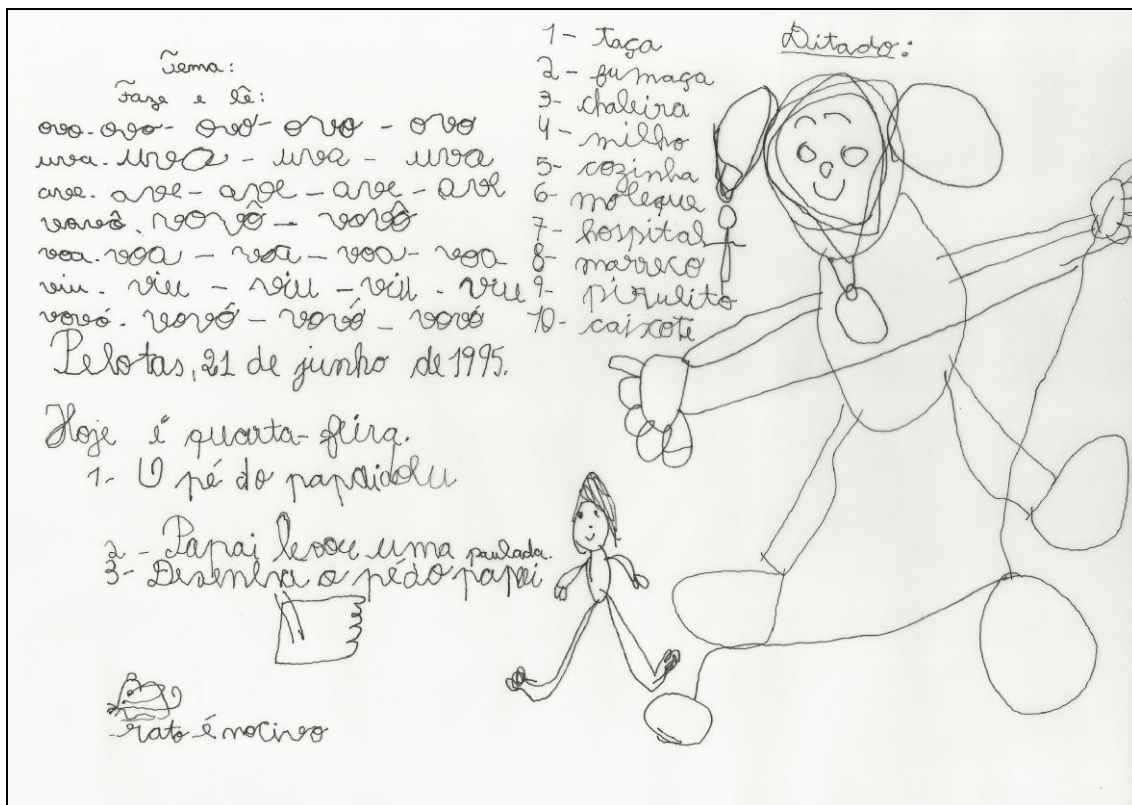 Tema:
Faze e lê:
ovo. ovo - ovo - ovo - ovo
uva. uva - uva - uva
ave. ave - ave - ave - ave
vovô. vovô - vovô
voa. voa - voa - voa - voa
viu. viu - viu - viu - viu
vovó. vovó - vovó - vovó
Pelotas, 21 de junho de 1995.
Hoje é quarta-feira.
1- O pé do papai
2 - Papai levou uma paulada.
3- Desenha o pé do papai
rato é nocivo
Ditado:
1- Taça
2- fumaça
3- chaleira
4- milho
5- cozinha
6- moleque
7- hospital
8- marreco
9- pirulito
10- caixote